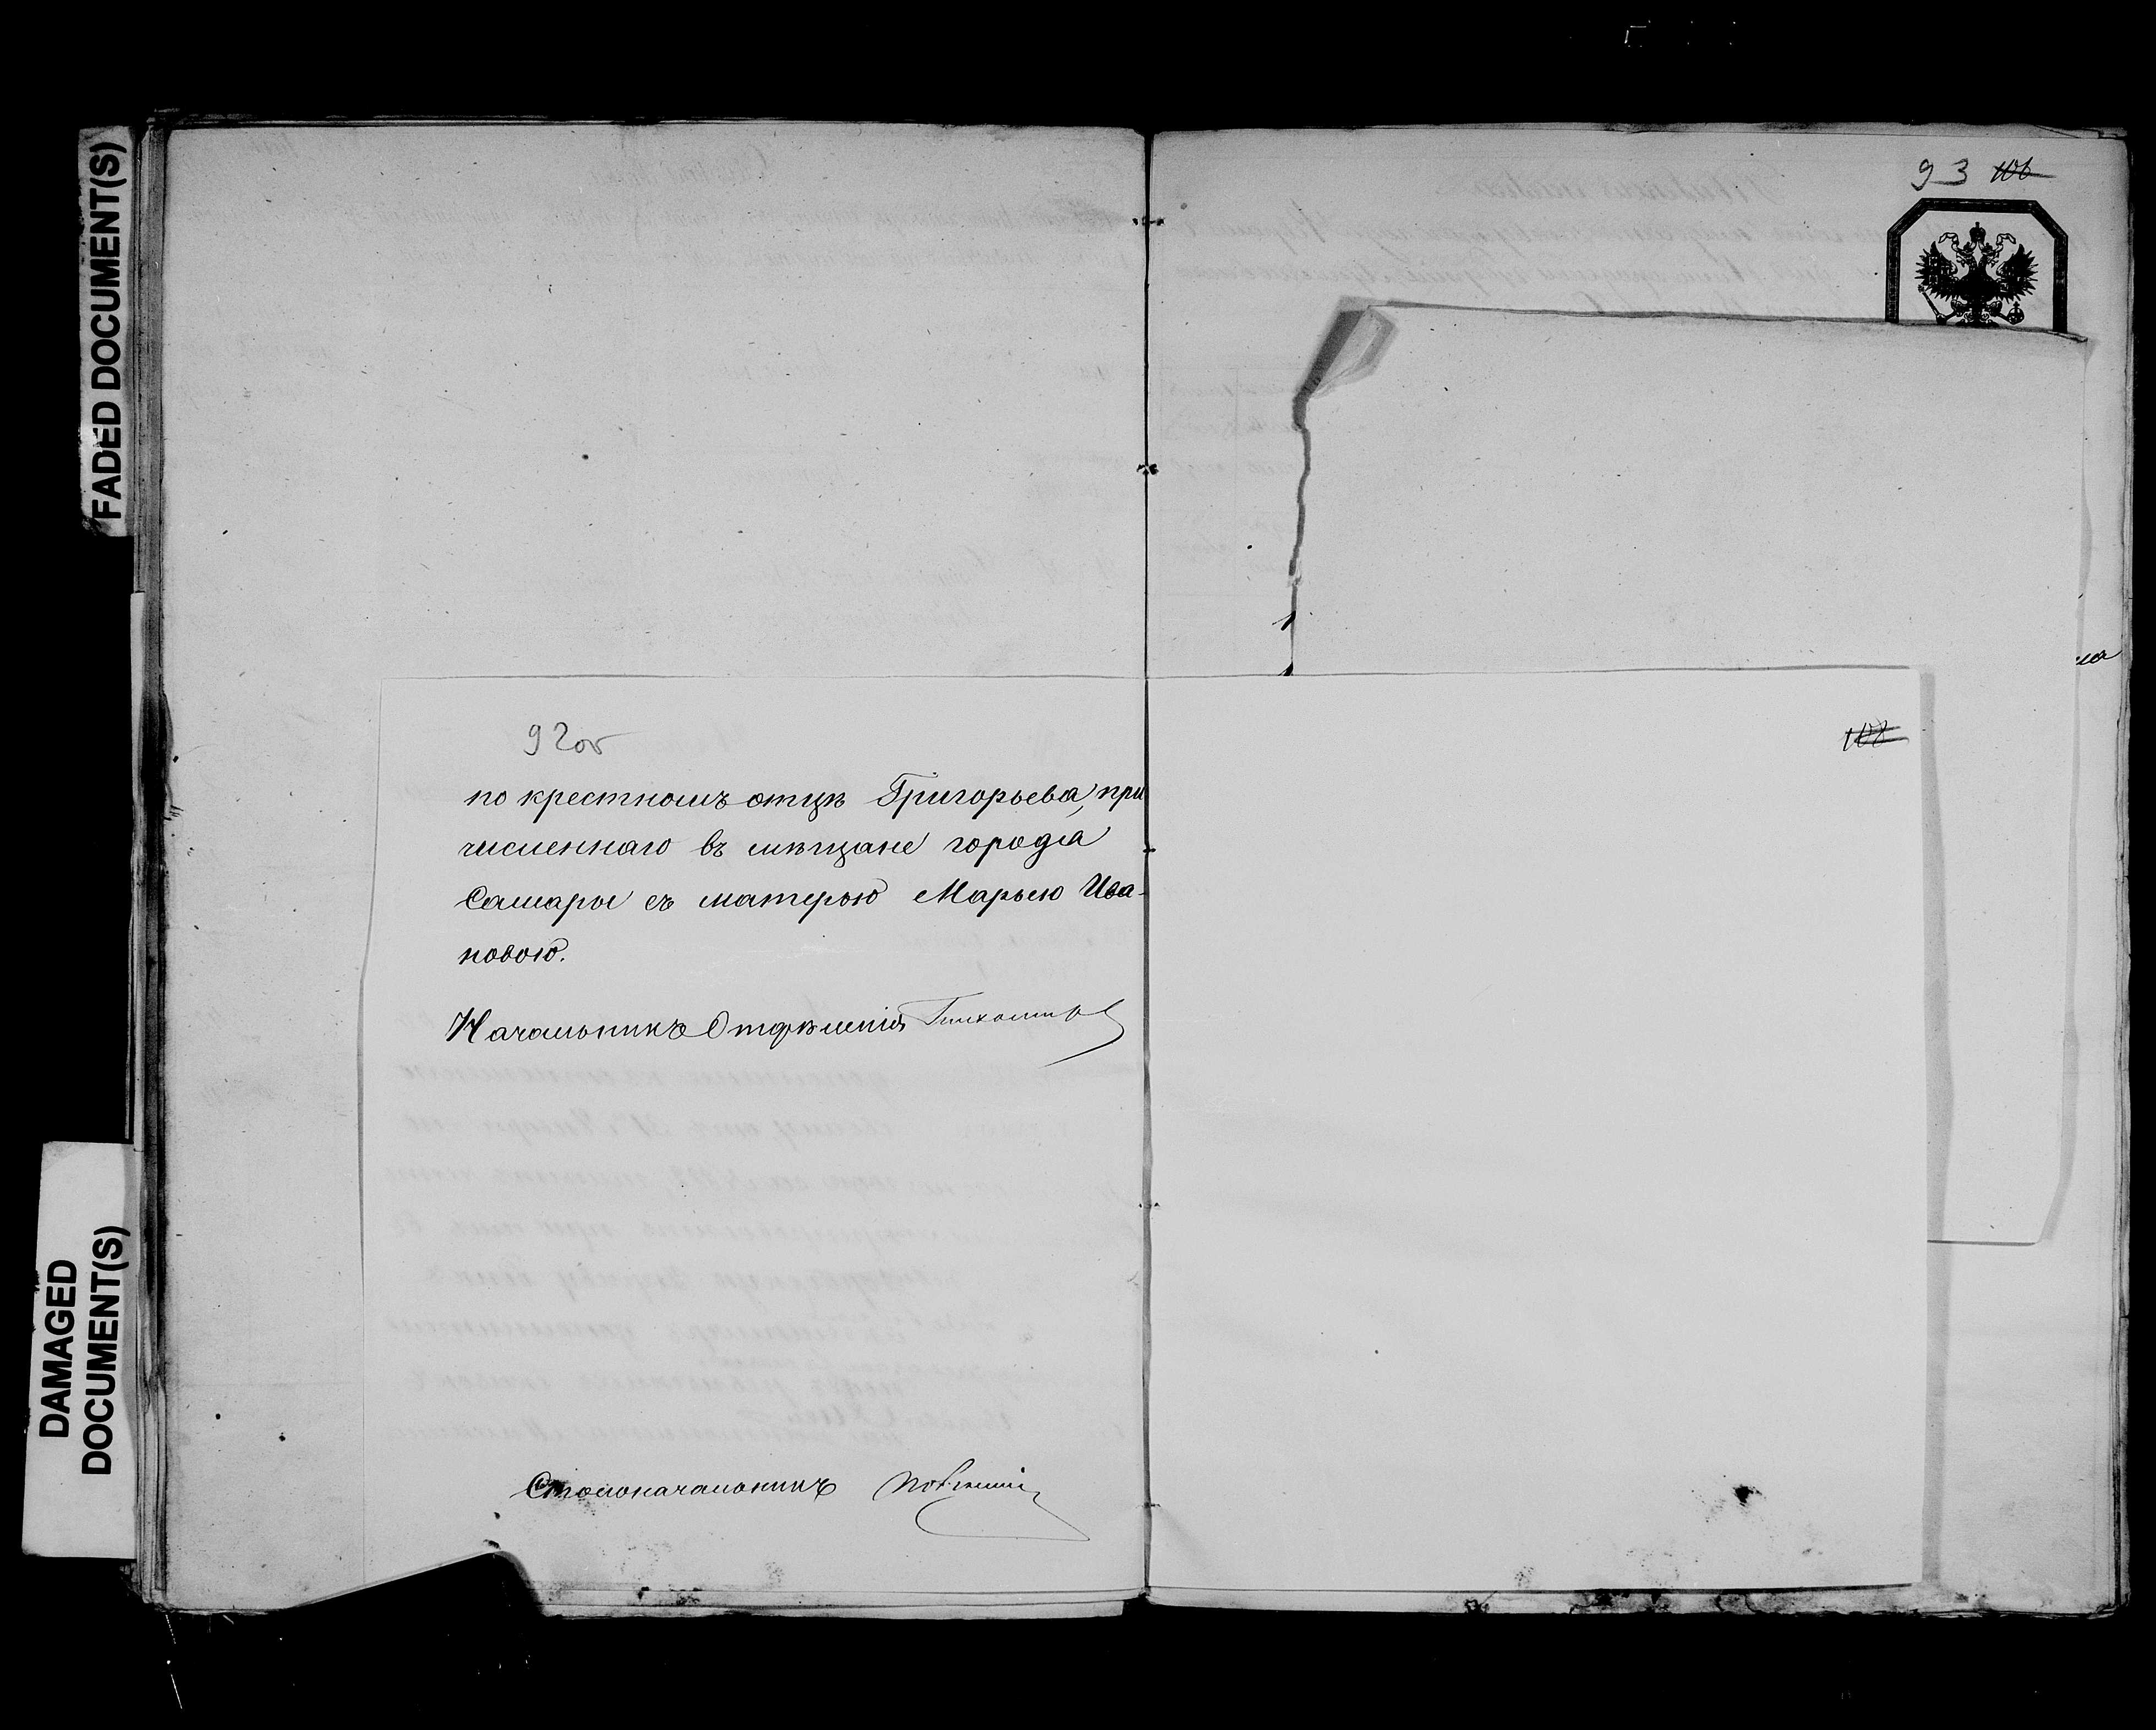 FADED DOCUMENT(S)
DAMAGED
DOCUMENT(S)
93 106
92об
108
по крестномъ отцѣ Григорьева, при
численнаго въ мѣщане города
Самары съ матерью Марьею Ива-
новою.
Начальникъ Отдѣленія
Столоначальникъ